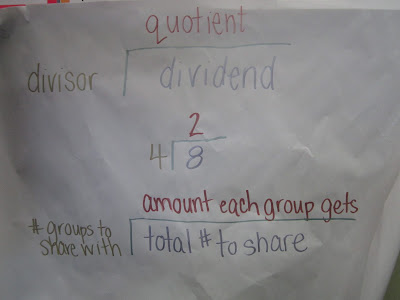 quotient
divisor dividend
2
4 8
amount each group gets
# groups to
share with total # to share